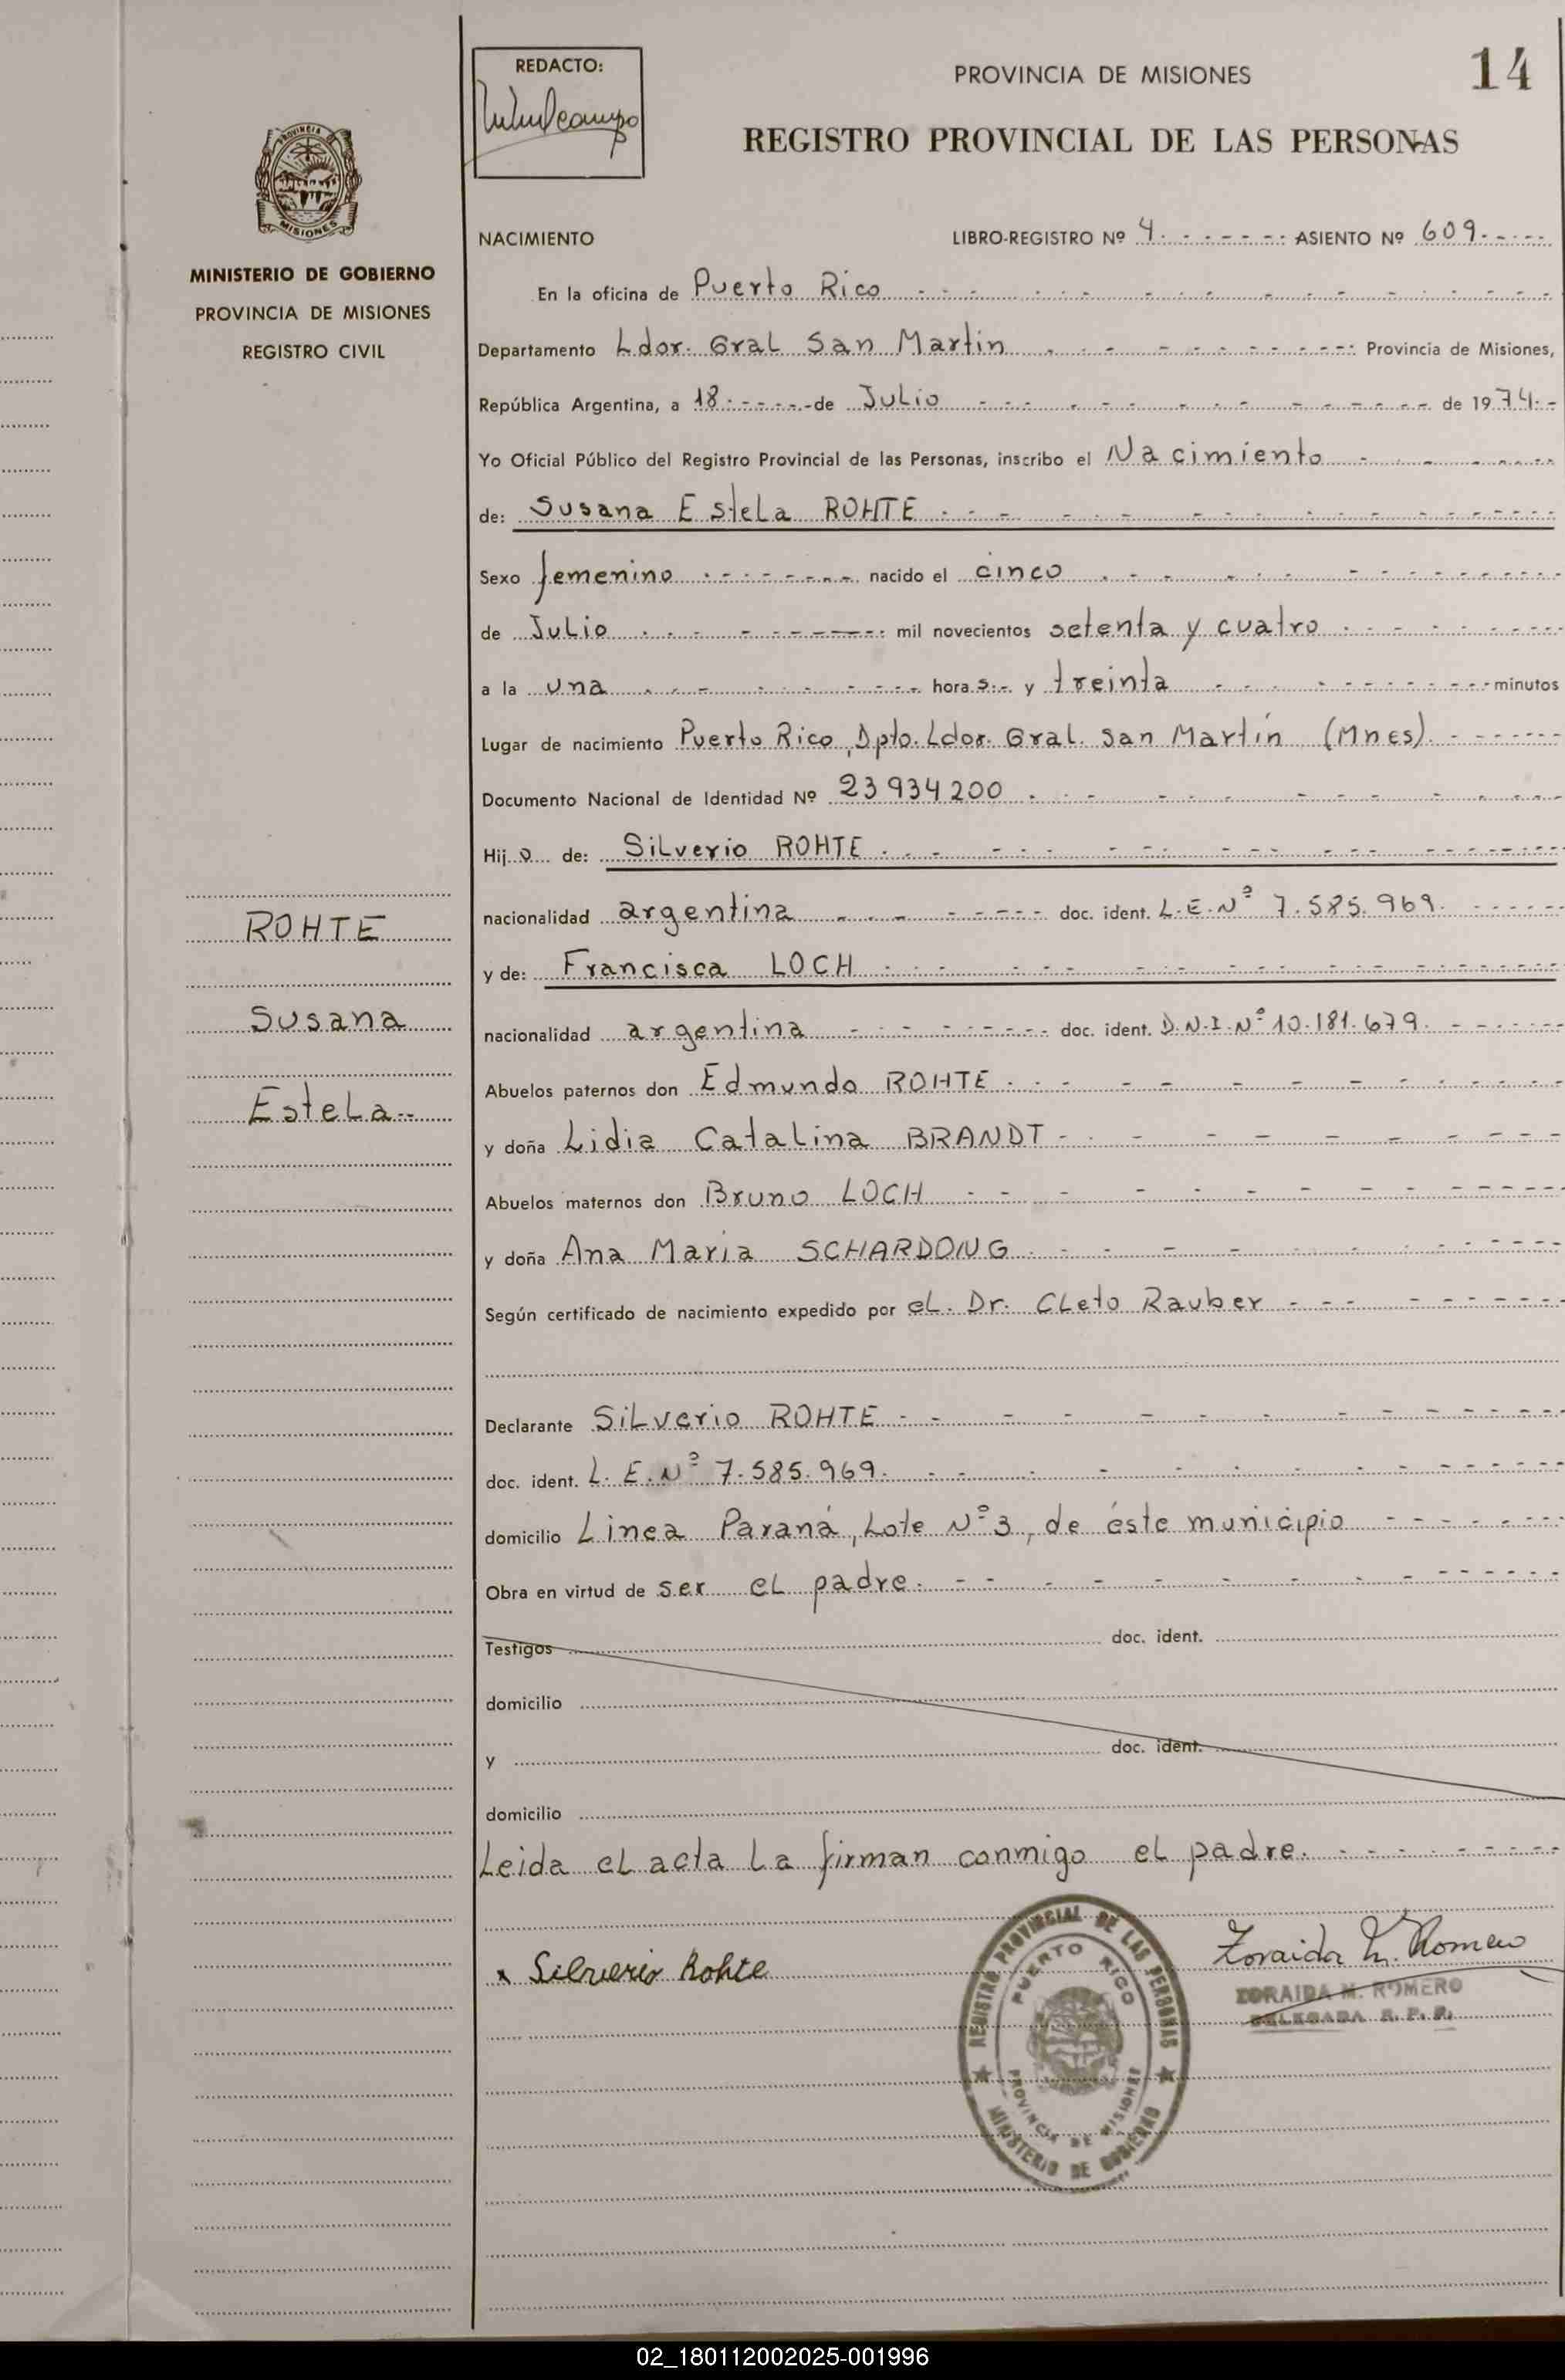 REDACTO:
PROVINCIA DE MISIONES
14
REGISTRO PROVINCIAL DE LAS PERSONAS
PROVINCIA
MISIONES
MINISTERIO DE GOBIERNO
PROVINCIA DE MISIONES
REGISTRO CIVIL
NACIMIENTO LIBRO-REGISTRO Nº 4 ASIENTO Nº 609
En la oficina de Puerto Rico
Departamento Ldor. Gral San Martin Provincia de Misiones,
República Argentina, a 18 de Julio de 1974
Yo Oficial Público del Registro Provincial de las Personas, inscribo el Nacimiento
de: Susana Estela ROHTE
Sexo femenino nacido el cinco
de Julio mil novecientos setenta y cuatro
a la una hora s y treinta minutos
Lugar de nacimiento Puerto Rico, Dpto. Ldor. Gral. San Martín (Mnes).
Documento Nacional de Identidad Nº 23934200
Hij a de: Silverio ROHTE
nacionalidad argentina doc. ident. L.E.Nº 7.585.969.
y de: Francisca LOCH
nacionalidad argentina doc. ident. D.N.I.Nº 10.181.679.
Abuelos paternos don Edmundo ROHTE
y doña Lidia Catalina BRANDT
Abuelos maternos don Bruno LOCH
y doña Ana Maria SCHARDONG
Según certificado de nacimiento expedido por el. Dr. Cleto Rauber
Declarante Silverio ROHTE
doc. ident. L.E.Nº 7.585.969.
domicilio Linea Paraná, Lote Nº 3, de éste municipio
Obra en virtud de ser el padre.
Testigos doc. ident.
domicilio
y doc. ident.
domicilio
Leida el acta la firman conmigo el padre.
ROHTE
Susana
Estela
x Silverio Rohte
Zoraida M. Romero
ZORAIDA M. ROMERO
DELEGADA R. P. P.
REGISTRO PROVINCIAL DE LAS PERSONAS
PUERTO RICO
PROVINCIA DE MISIONES
MINISTERIO DE GOBIERNO
02_180112002025-001996